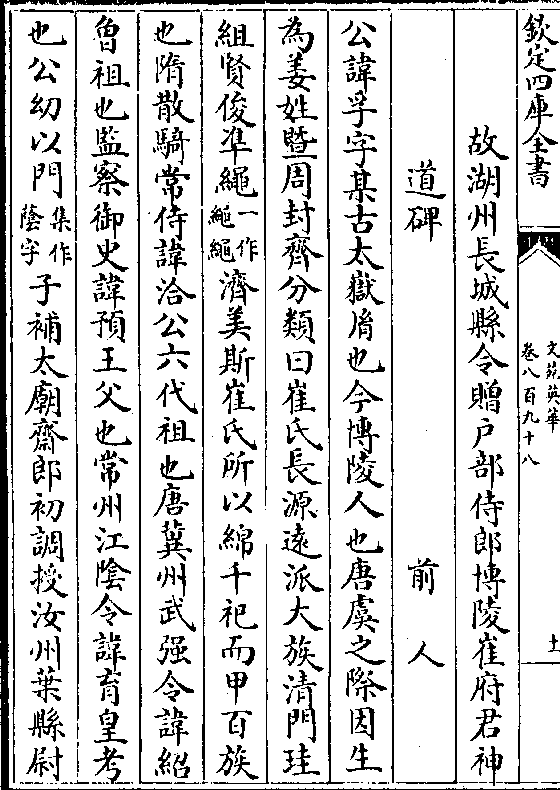 欽定四庫全書
文苑英華
卷八百九十八
十一
故湖州長城縣令贈戶部侍郎博陵崔府君神
道碑 前人
公諱孚字某古太嶽𦙍也今博陵人也唐虞之際因生
為姜姓暨周封齊分類曰崔氏長源遠派大族清門珪
組賢俊凖繩一作繩繩濟美斯崔氏所以綿千祀而甲百族
也隋散騎常侍諱洽公六代祖也唐冀州武强令諱紹
曾祖也監察御史諱預王父也常州江陰令諱育皇考
也公幼以門集作蔭字子補太廟齋郎初調授汝州葉縣尉